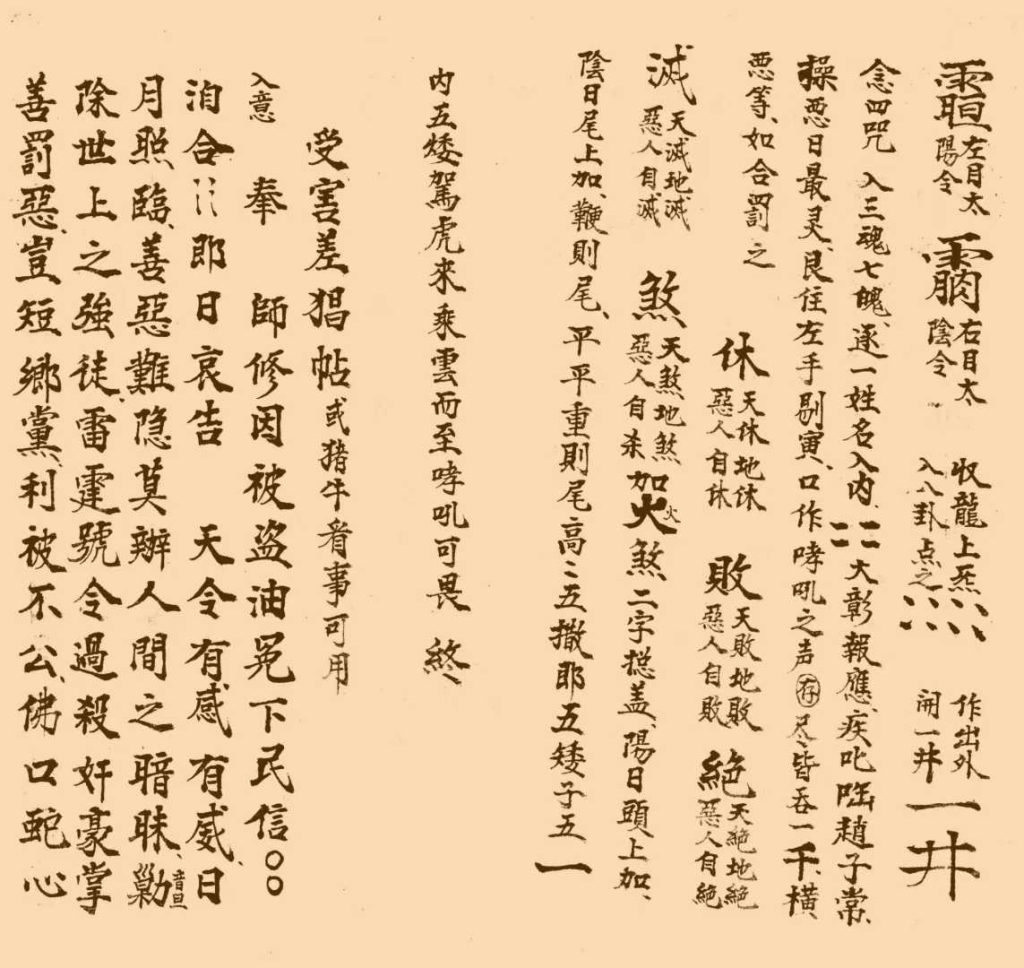 左目太陽令 右目太陰令 收龍上炁入八卦点之 作出外開一井 一井
念四咒 入三魂七魄、逐一姓名入內、二二大彰報應、疾叱 趙子常、
操惡日最灵、艮住左手剔寅、口作哮吼之声 存 尽皆吞一千、橫
惡等、如合罰之 休 天休地休惡人自休 敗 天敗地敗惡人自敗 絕 天絕地絕惡人自絕
滅 天滅地滅惡人自滅 煞 天煞地煞惡人自杀 加火火煞二字捴盖、陽日頭上加、
陰日尾上加、鞭則尾、平平重則尾高〻五撒耶五矮子五一
內五矮駕虎來乘雲而至哮吼可畏 終
受害差猖帖 或猪牛者事可用
奉 師修因被盗油 下民信〇〇
入意 洎合 即日哀告 天令有感有威、日
月照臨、善惡難隐莫辦人間之暗昧、勦音旦
除世上之強徒、雷霆號令過殺奸豪掌
善罰惡、豈短、鄉黨、利被不公、佛口蛇心